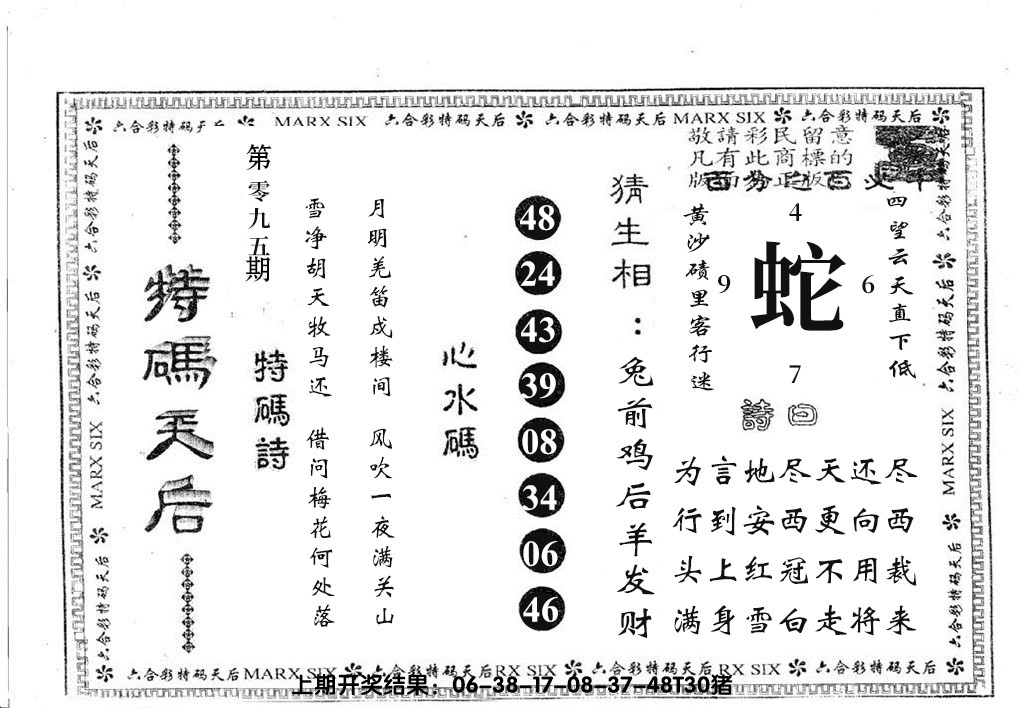 六合彩特码天后 MARX SIX 六合彩特码天后 六合彩特码天后 MARX SIX 六合彩特码天后
六合彩特码天后 六合彩特码天后 MARX SIX 六合彩特码天后
特碼天后
第零九五期
特碼詩
雪净胡天牧马还 借问梅花何处落
月明羌笛戍楼间 风吹一夜满关山
心水碼
48
24
43
39
08
34
06
46
猜生相：兔前鸡后羊发财
敬請彩民留意
凡有此商標的
黄沙碛里客行迷
4
9 蛇 6
7
四望云天直下低
詩曰
为言地尽天还尽
行到安西更向西
头上红冠不用裁
满身雪白走将来
六合彩特码天后 六合彩特码天后 MARX SIX 六合彩特码天后
六合彩特码天后 MARX SIX 六合彩特码天后 RX SIX 六合彩特码天后 RX SIX 六合彩特码天后
上期开奖结果：06-38-17-08-37-48T30猪